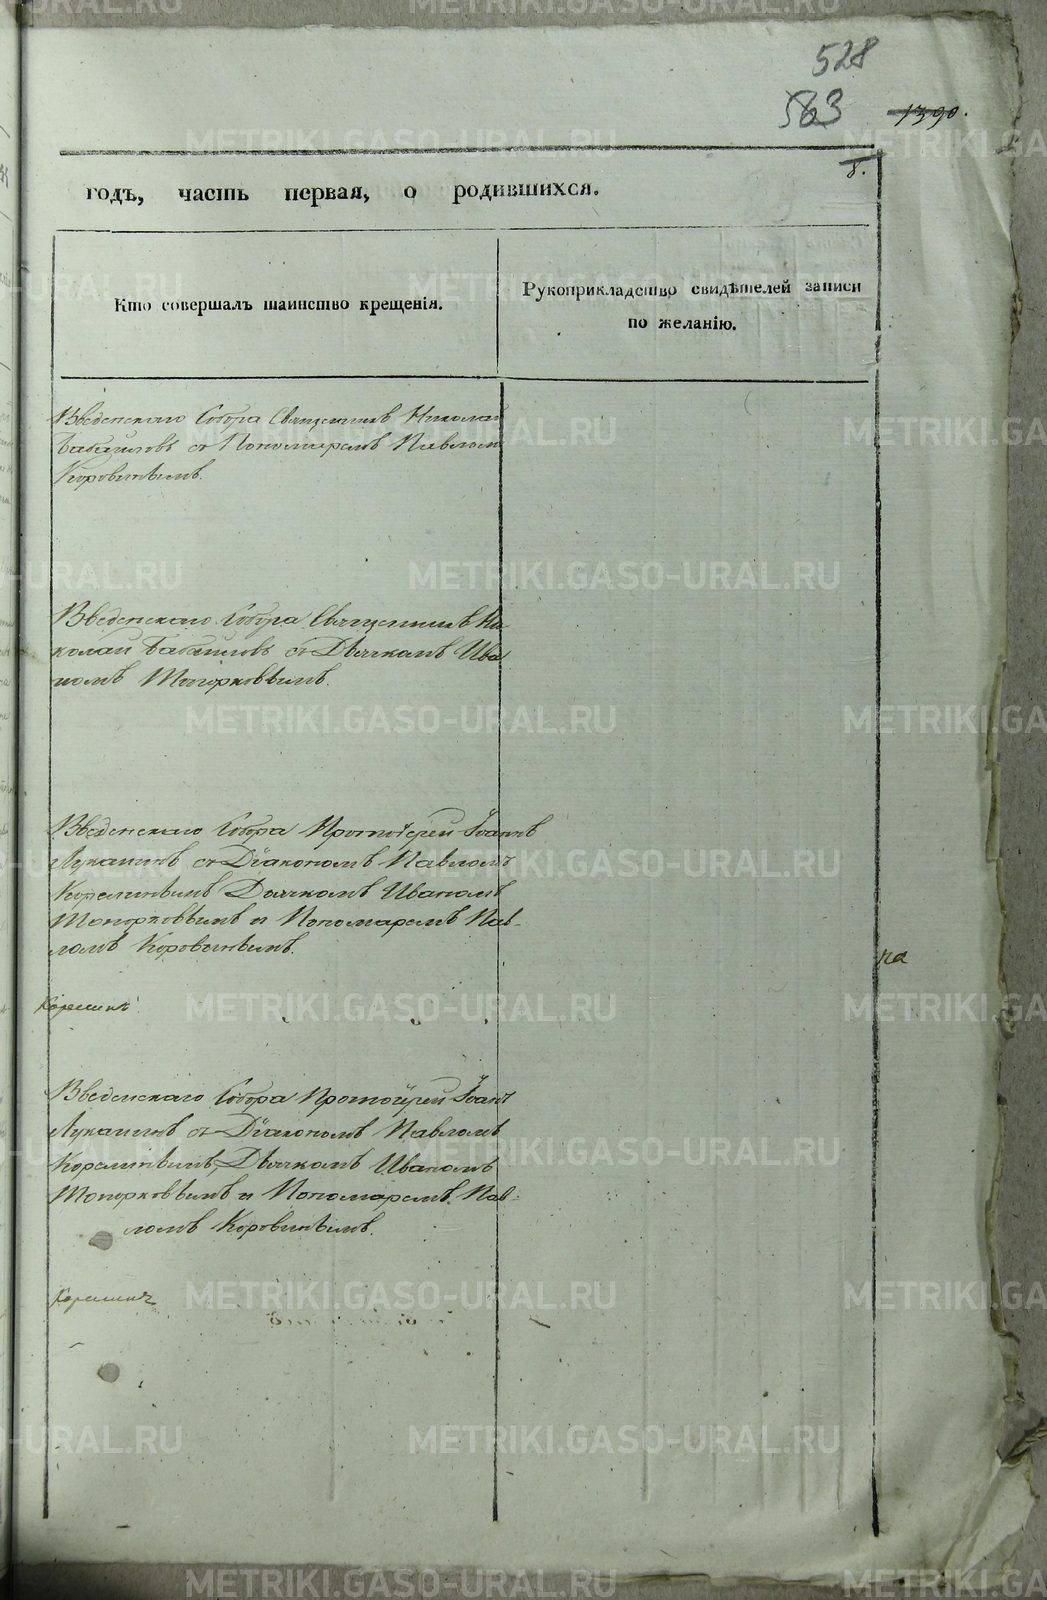 528
563
1390.
8.
годъ, часть первая, о родившихся.
Кто совершалъ таинство крещенія.
Рукоприкладство свидѣтелей записи
по желанію.
Введенскаго Собора Священникъ Николай
Бабаиловъ съ Пономаремъ Павломъ
Коровинымъ.
Введенскаго Собора Священникъ Ни
колай Бабаиловъ съ Дьячкомъ Ива
номъ Топорковымъ.
Введенскаго Собора Протоіерей Іоаннъ
Лукашинъ съ Діакономъ Павломъ
Корелинымъ Дьячкомъ Иваномъ
Топорковымъ и Пономаремъ Пав-
ломъ Коровинымъ.
на
Корелинъ
Введенскаго Собора Протоіерей Іоаннъ
Лукашинъ съ Діакономъ Павломъ
Корелинымъ, Дьячкомъ Иваномъ
Топорковымъ и Пономаремъ Пав-
ломъ Коровинымъ.
Корелинъ
METRIKI.GASO-URAL.RU